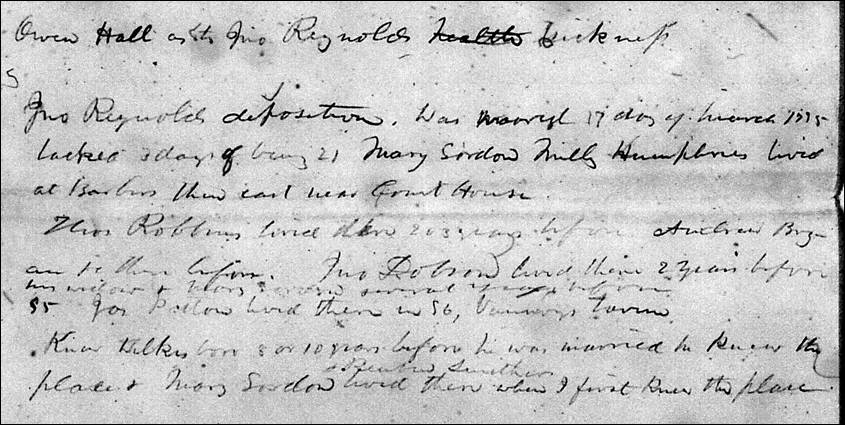 Owen Hall as to Jno Reynolds health sickness
Jno Reynolds deposition. Was married 17 day of March
lacked 3 days of being 21 Mary Gordon Milly Humphries lived
at then east near Court House.
Thos Robbins lived there 2 or 3 years before Andrew
before. Jno Dobson lived there 2 years before
his widow & several years before
55 Jas lived there in 56, tavern
Knew Wilkesboro 8 or 10 years before he was married he knew the
& Reuben Smithers
place & Mary Gordon lived there when I first knew the place